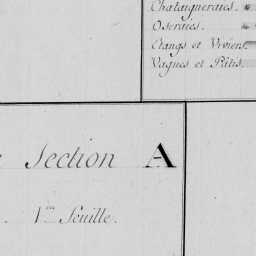 Chataigneraies.
Oseraies.
Etangs et Viviers.
Vagues et Pâtis.
Section A
1.re Feuille.